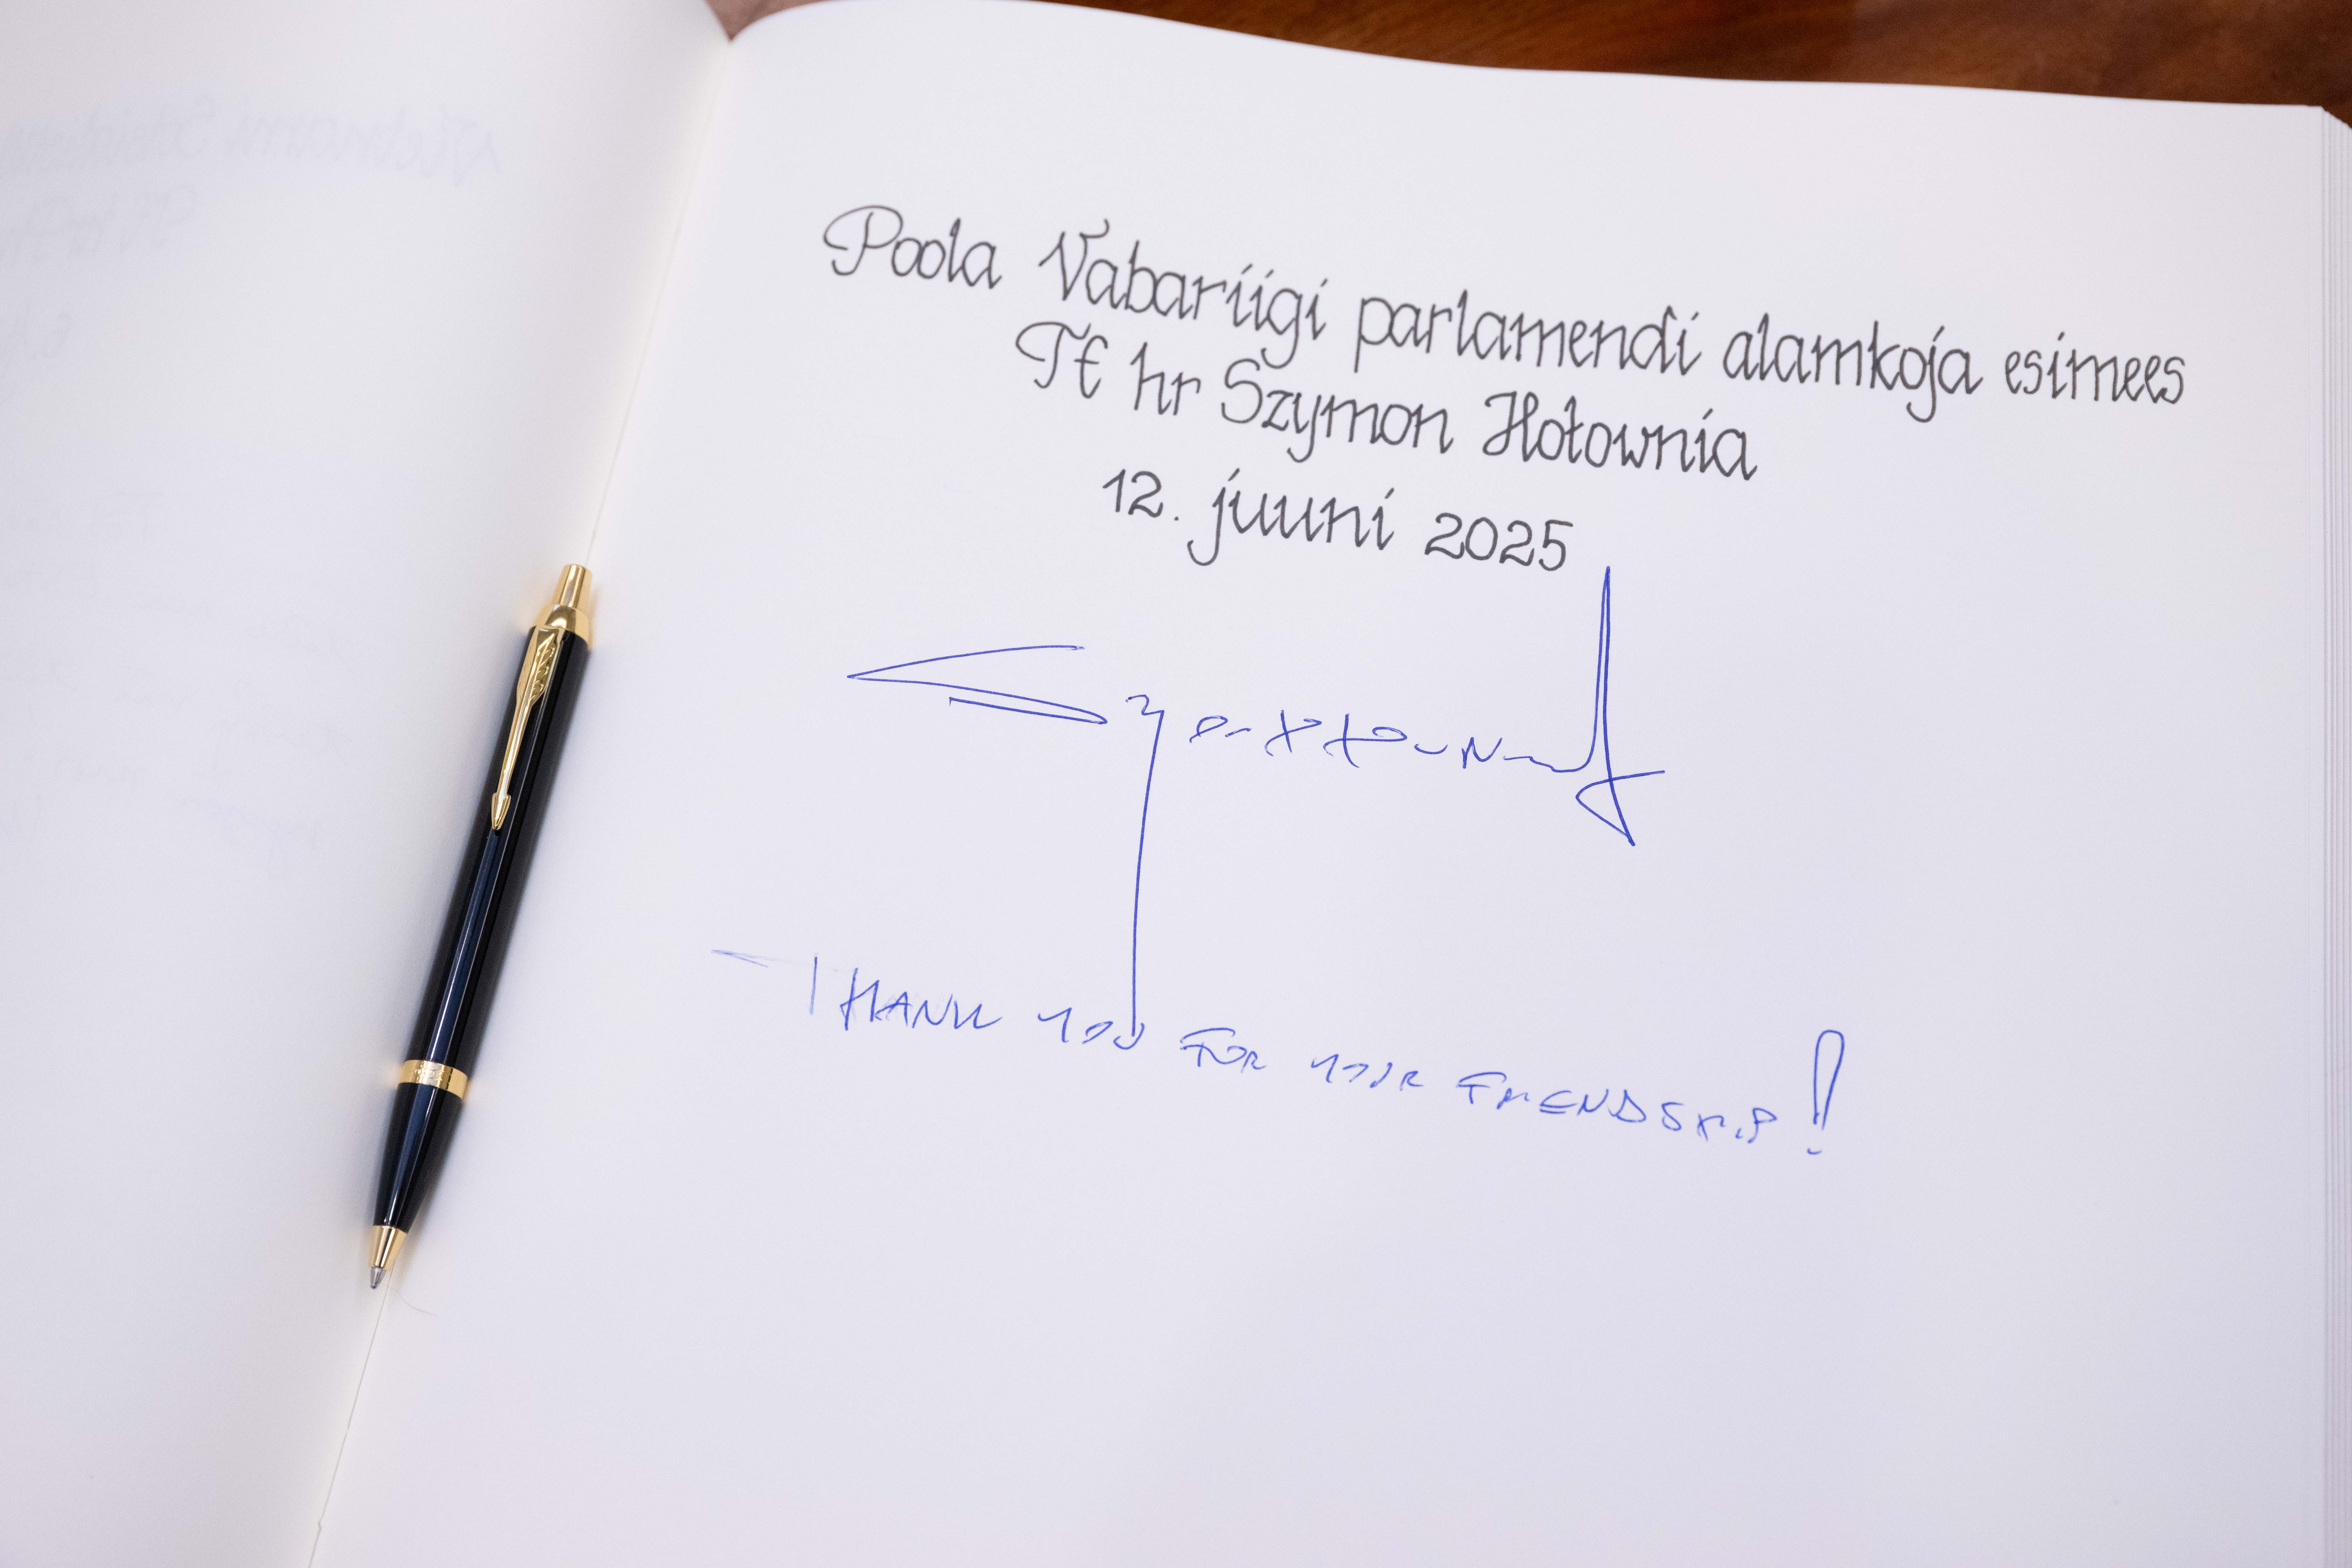 Poola Vabariigi parlamendi alamkoja esimees
TE hr Szymon Hołownia
12. juuni 2025
THANK YOU FOR YOUR FRIENDSHIP!